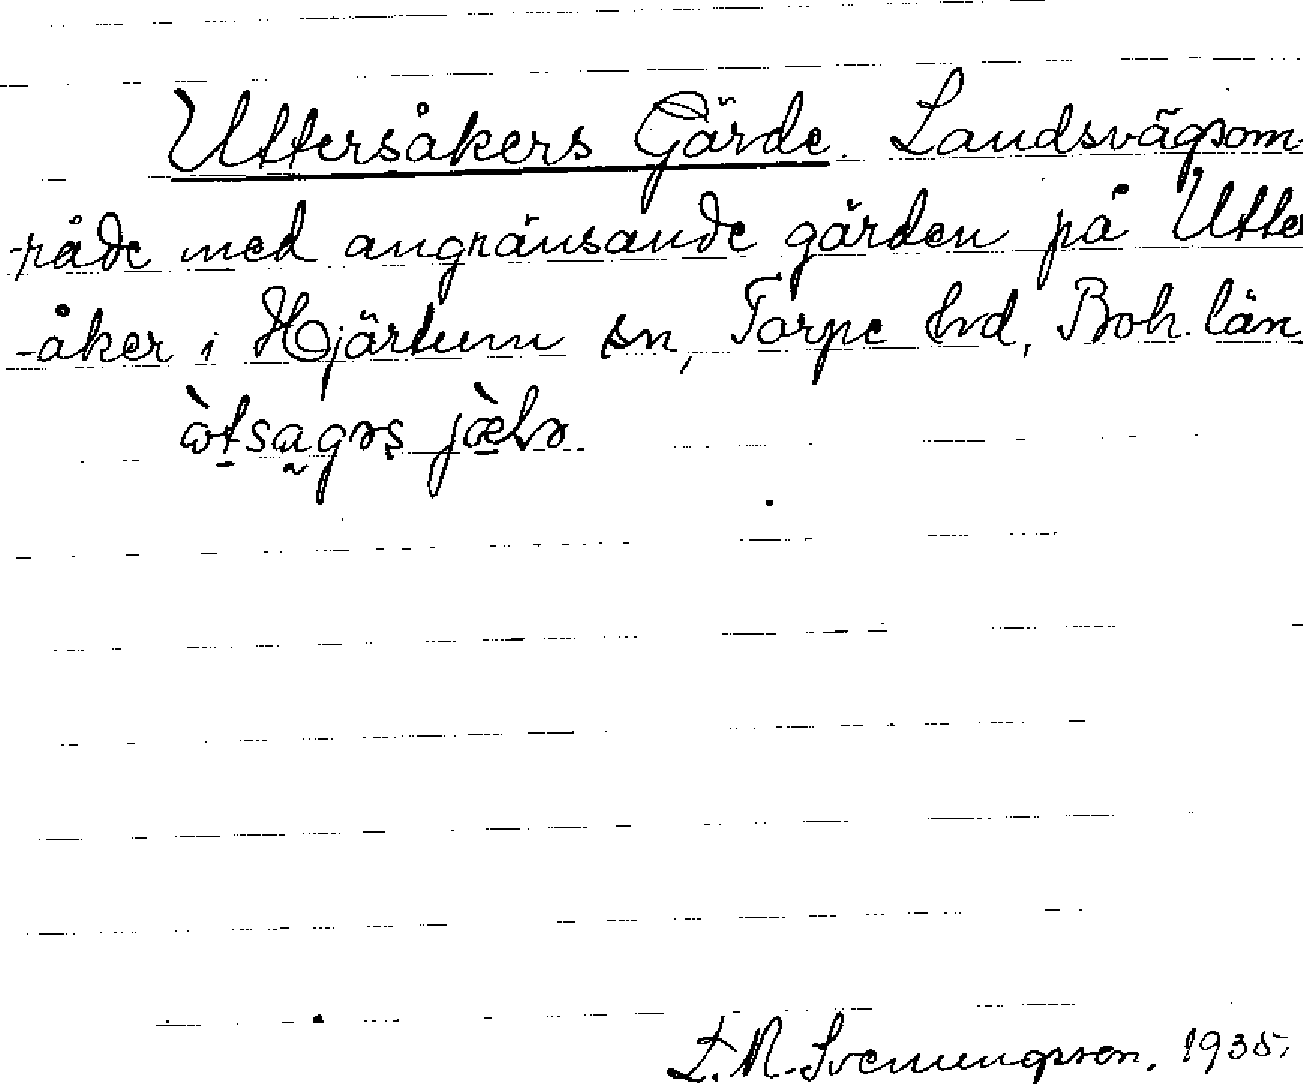 Uttersåkers Gärde. Landsvägsom-
-råde med angränsande gärden på Utte
-åker i Hjärtum sn, Torpe hd, Boh. län

S. R. Svenungsson. 1935.